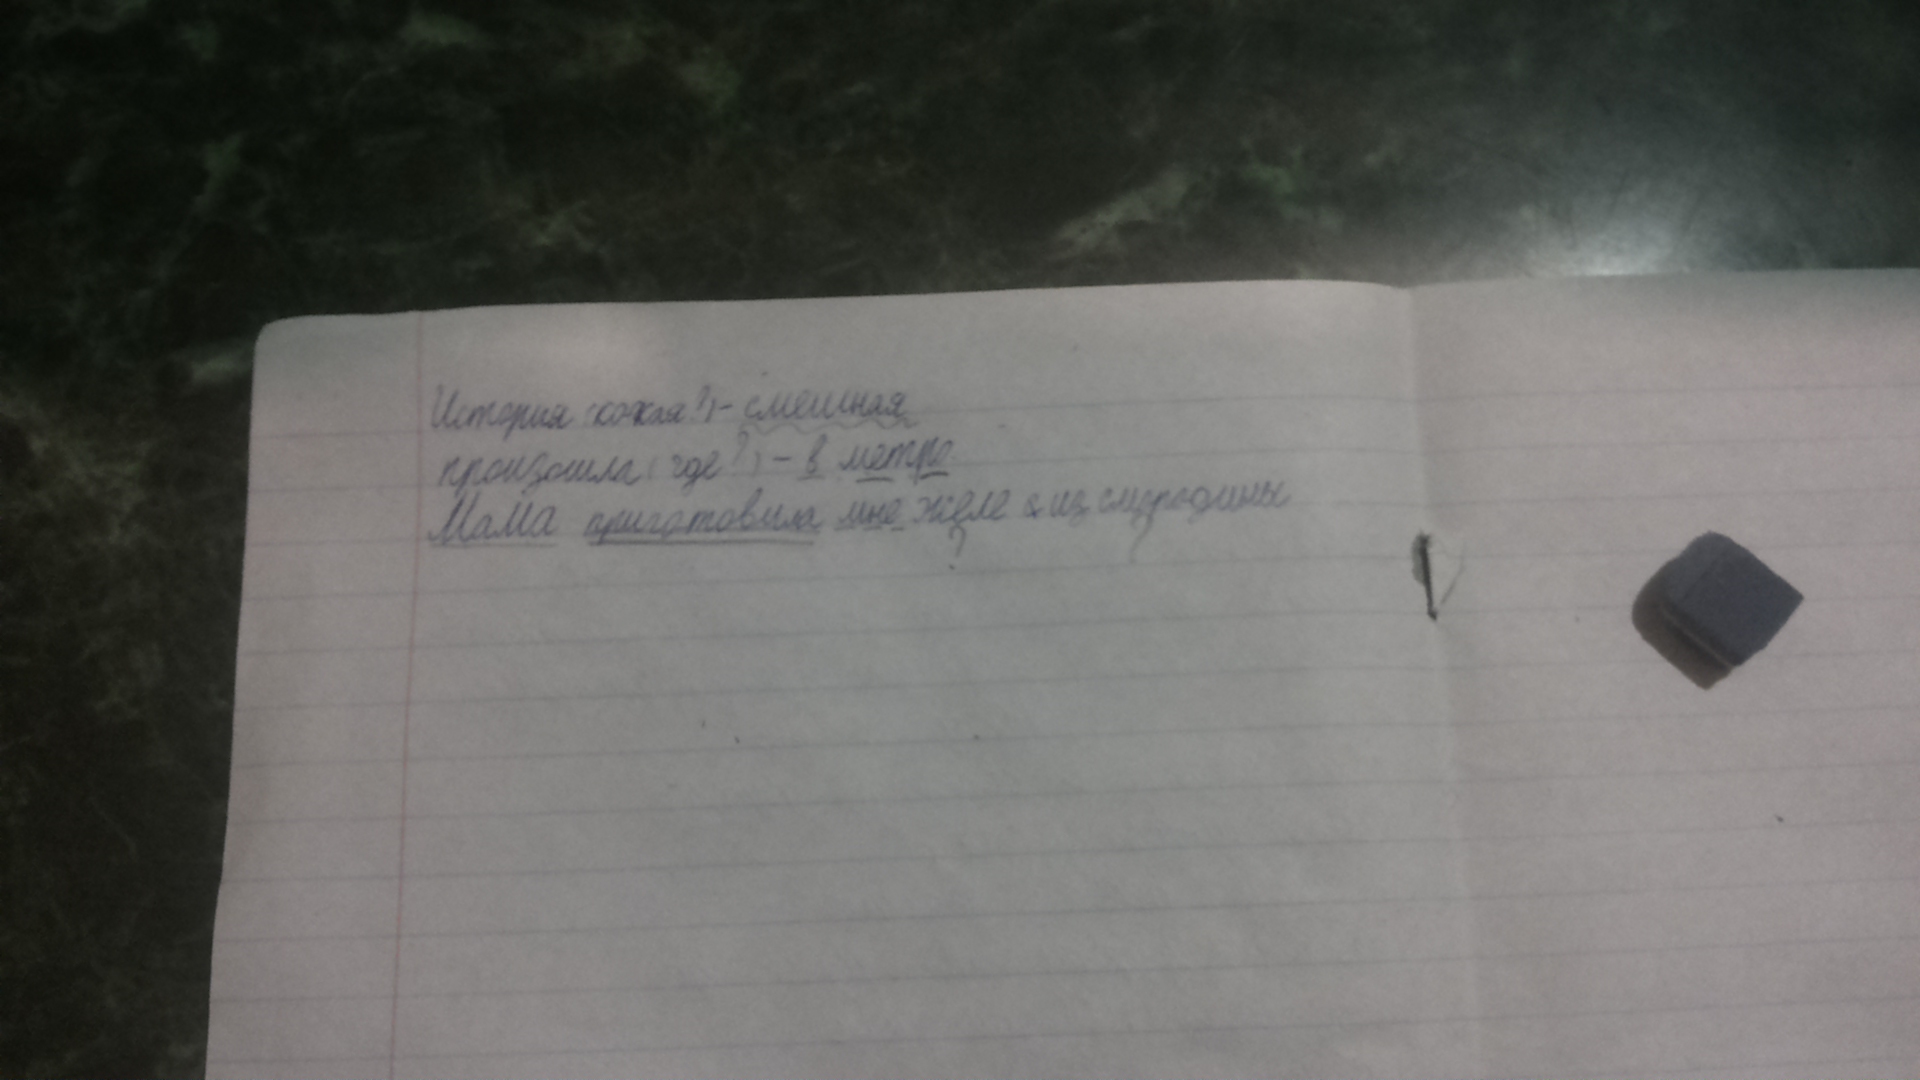 История (какая?) - смешная
произошла (где?) - в метро
Мама приготовила мне желе из смородины
? ?